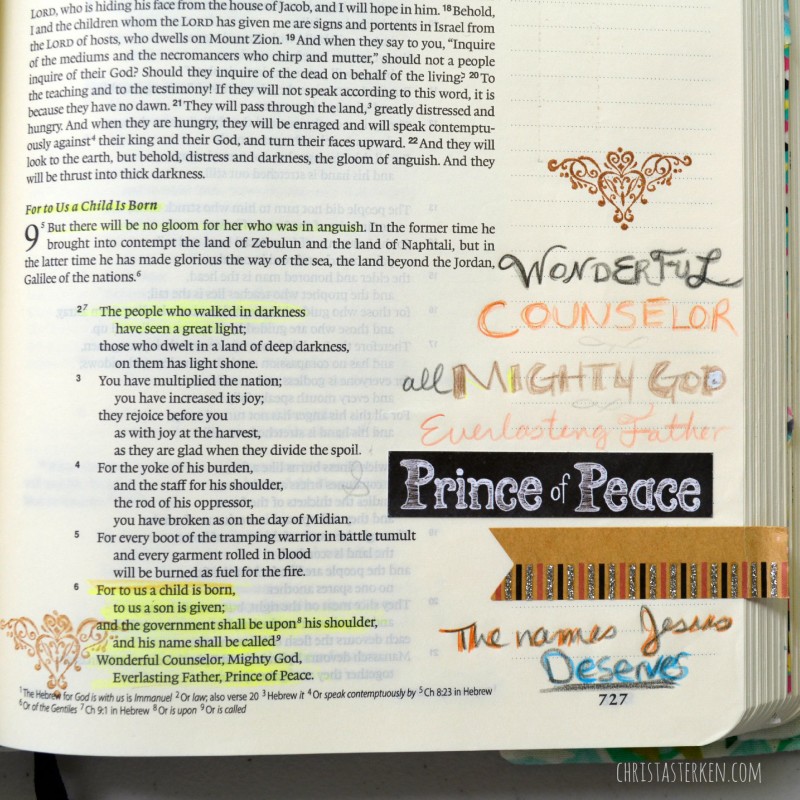 LORD, who is hiding his face from the house of Jacob, and I will hope in him. 18 Behold,
I and the children whom the LORD has given me are signs and portents in Israel from
the LORD of hosts, who dwells on Mount Zion. 19 And when they say to you, “Inquire
of the mediums and the necromancers who chirp and mutter,” should not a people
inquire of their God? Should they inquire of the dead on behalf of the living? 20 To
the teaching and to the testimony! If they will not speak according to this word, it is
because they have no dawn. 21 They will pass through the land,3 greatly distressed and
hungry. And when they are hungry, they will be enraged and will speak contemptu-
ously against4 their king and their God, and turn their faces upward. 22 And they will
look to the earth, but behold, distress and darkness, the gloom of anguish. And they
will be thrust into thick darkness.
For to Us a Child Is Born
9 5 But there will be no gloom for her who was in anguish. In the former time he
brought into contempt the land of Zebulun and the land of Naphtali, but in
the latter time he has made glorious the way of the sea, the land beyond the Jordan,
Galilee of the nations.6
2 7 The people who walked in darkness
have seen a great light;
those who dwelt in a land of deep darkness,
on them has light shone.
3 You have multiplied the nation;
you have increased its joy;
they rejoice before you
as with joy at the harvest,
as they are glad when they divide the spoil.
4 For the yoke of his burden,
and the staff for his shoulder,
the rod of his oppressor,
you have broken as on the day of Midian.
5 For every boot of the tramping warrior in battle tumult
and every garment rolled in blood
will be burned as fuel for the fire.
6 For to us a child is born,
to us a son is given;
and the government shall be upon8 his shoulder,
and his name shall be called9
Wonderful Counselor, Mighty God,
Everlasting Father, Prince of Peace.
1 The Hebrew for God is with us is Immanuel 2 Or law; also verse 20 3 Hebrew it 4 Or speak contemptuously by 5 Ch 8:23 in Hebrew
6 Or of the Gentiles 7 Ch 9:1 in Hebrew 8 Or is upon 9 Or is called
WONDERFUL
COUNSELOR
all MIGHTY GOD
Everlasting Father
Prince of Peace
The names Jesus
Deserves
727
CHRISTASTERKEN.COM